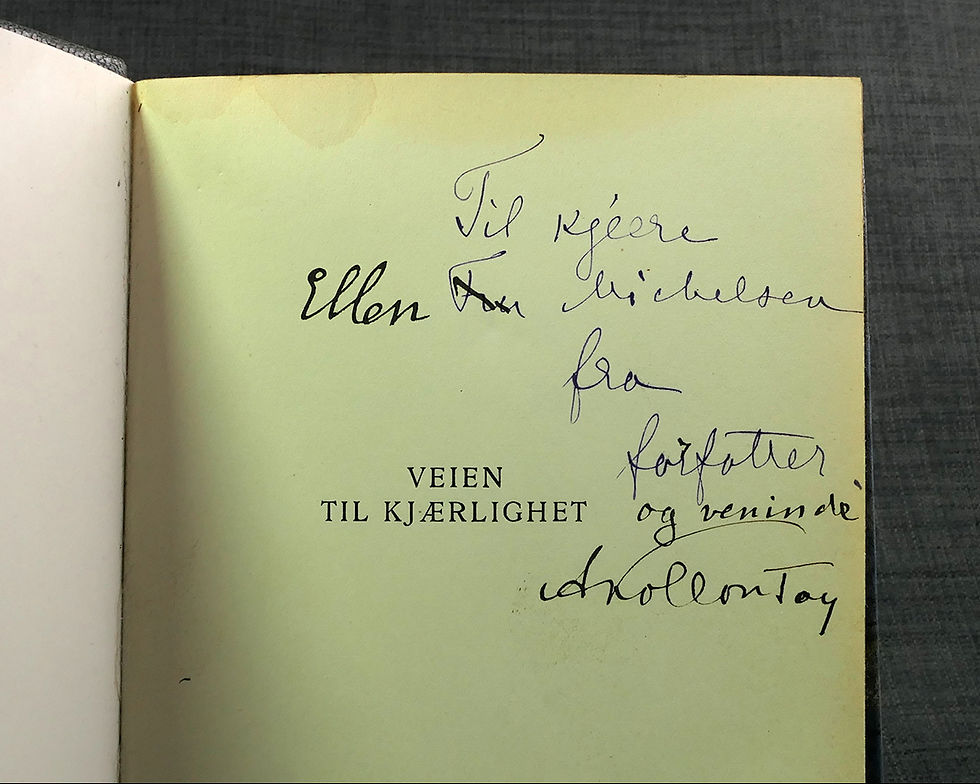 Til kjære
Ellen Michelsen
fra
forfatter
og veninde
VEIEN
TIL KJÆRLIGHET
AKollontay